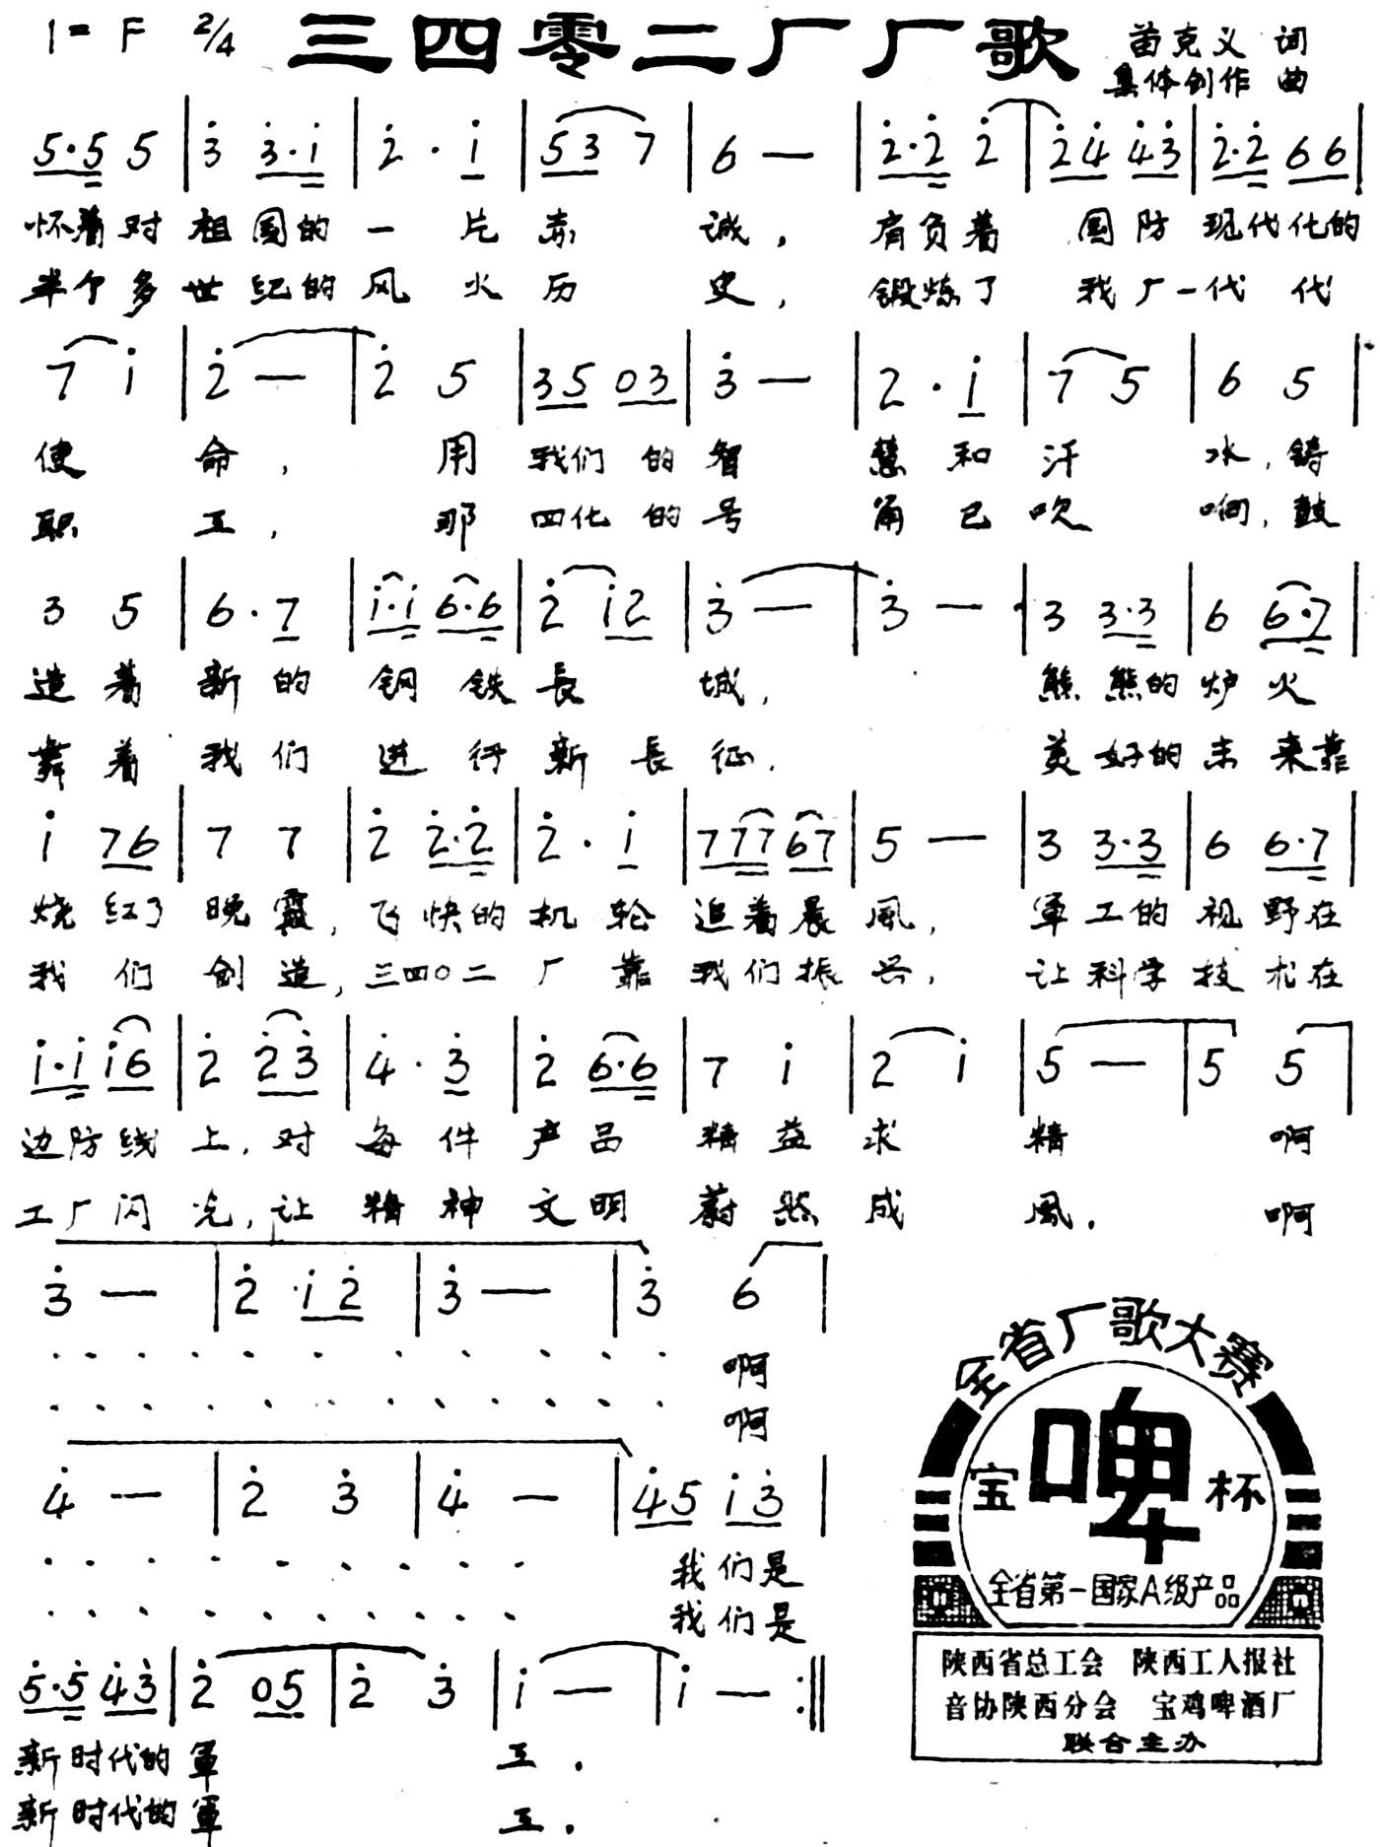 1=F 2/4 三四零二厂厂歌 苗克义 词
集体创作 曲
5·5 5 | 3 3·1 | 2 · 1 | 53 7 | 6 — | 2·2 2 | 24 43 | 2·2 66 |
怀着对 祖国的 一 片 赤 诚, 肩负着 国防 现代化的
半个多 世纪的 风 火 历 史, 锻炼了 我厂一代 代
7 1 | 2 — | 2 5 | 35 03 | 3 — | 2 · 1 | 7 5 | 6 5 |
使 命, 用 我们 的 智 慧 和 汗 水, 铸
职 工, 那 四化 的 号 角 已 吹 响, 鼓
3 5 | 6 · 7 | 1·1 6·6 | 2 12 | 3 — | 3 — | 3 3·3 | 6 6·7 |
造 着 新 的 钢 铁 長 城, 熊 熊的 炉 火
舞 着 我 们 进 行 新 長 征. 美 好的 未 来靠
1 76 | 7 7 | 2 2·2 | 2 · 1 | 777 67 | 5 — | 3 3·3 | 6 6·7 |
烧 红了 晚 霞, 飞 快的 机 轮 追着晨 風, 軍 工的 视 野在
我 们 创 造, 三四〇二 厂 靠 我们振 兴, 让 科学 技 术在
1·1 16 | 2 23 | 4 · 3 | 2 6·6 | 7 1 | 2 1 | 5 — | 5 5 |
边防线 上, 对 每 件 产 品 精 益 求 精 啊
工厂闪 光, 让 精 神 文 明 蔚 然 成 風. 啊
3 — | 2 · 12 | 3 — | 3 6 |
啊
啊
4 — | 2 3 | 4 — | 45 13 |
我们是
我们是
5·5 43 | 2 05 | 2 3 | 1 — | 1 — :||
新时代的 軍 工.
新时代的 軍 工.
全省厂歌大赛
宝 啤 杯
全省第一国家A级产品
陕西省总工会 陕西工人报社
音协陕西分会 宝鸡啤酒厂
联合主办